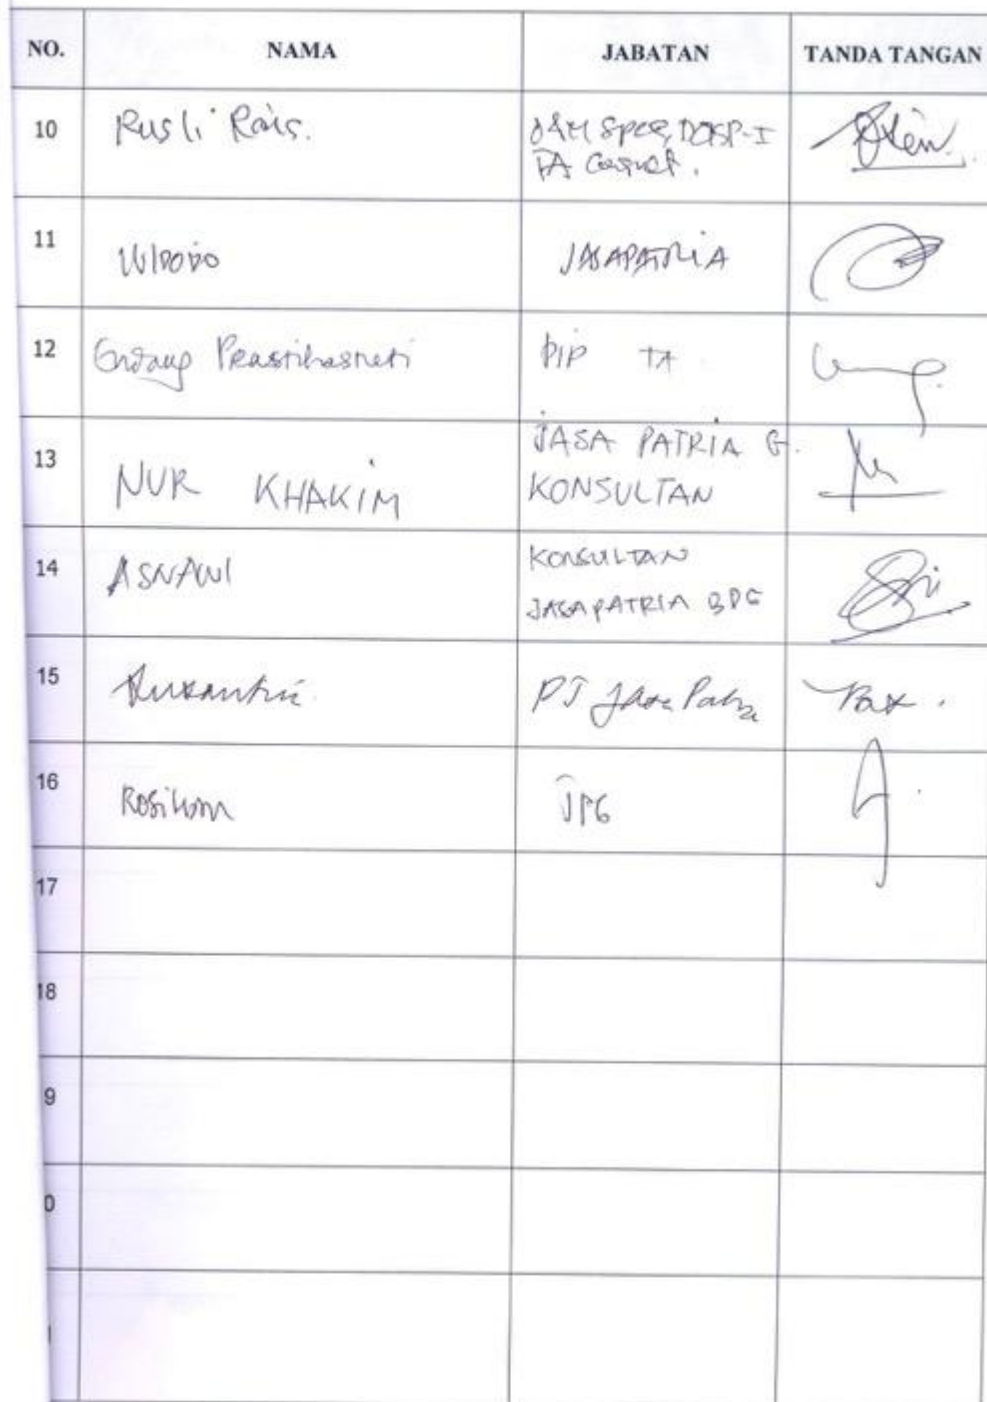 NO. NAMA JABATAN TANDA TANGAN
10 Rusli Rais. O&M Spec, DOISP-I
TA
11 WIDODO JASAPATRIA
12 Endang PIP TA
13 NUR KHAKIM JASA PATRIA G.
KONSULTAN
14 ASNAWI KONSULTAN
JASAPATRIA
15 PT Jasa Patria
16 Rosihan JPG
17
18
9
0